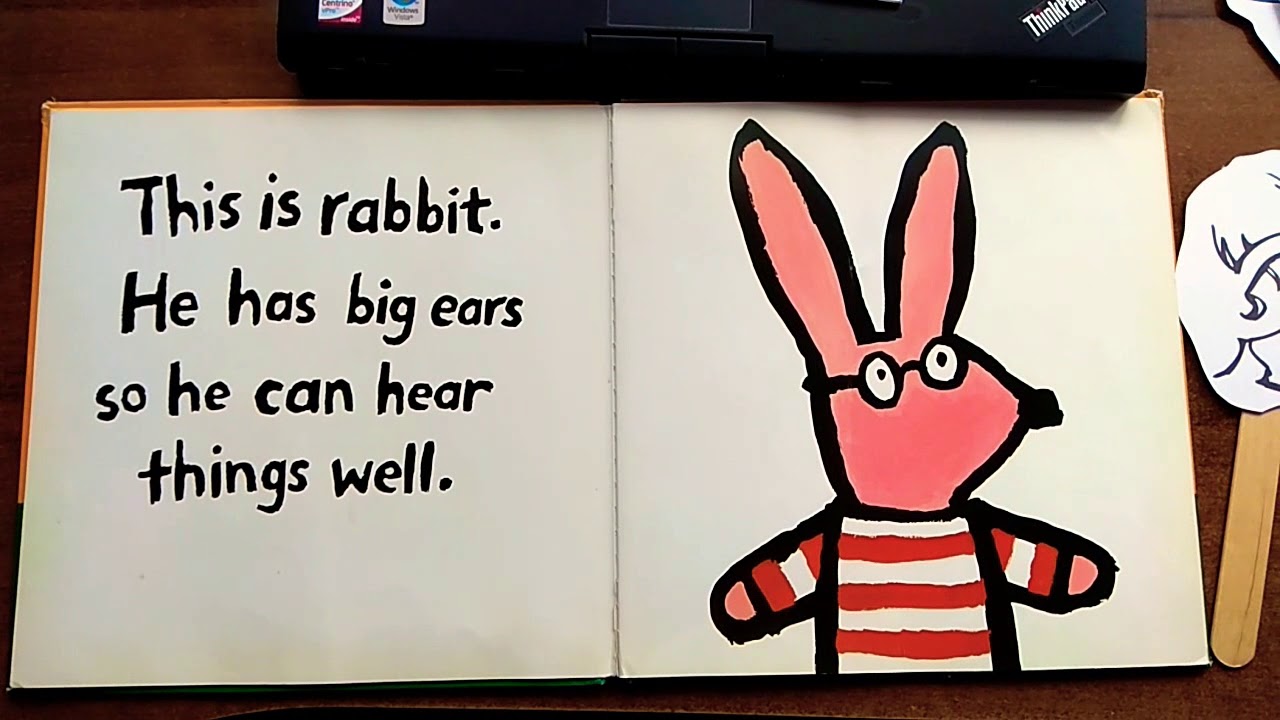 Centrino
vPro
inside
Windows
Vista
ThinkPad
This is rabbit.
He has big ears
so he can hear
things well.